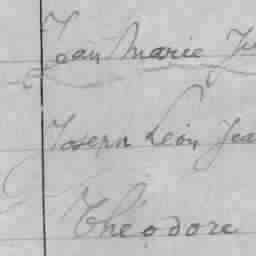 Jean Marie
Joseph Léon Jea
Théodore